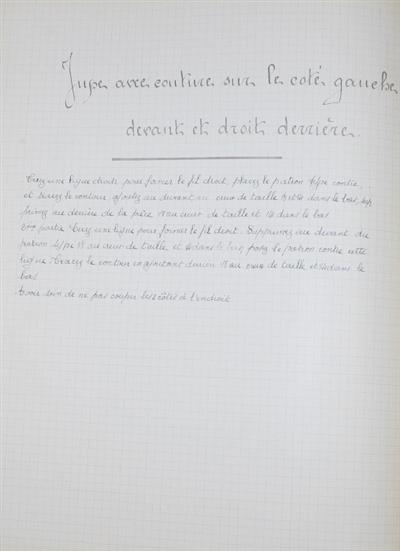 Jupe avec couture sur le coté gauche
devant et droit derrière.
Tracez une ligne droite pour former le fil droit, placez le patron type contre,
et suivez le contour ajoutez au devant au creux de taille et dans le bas, sup
primez au derrière de la pièce au creux de taille et dans le bas
2me partie Tracez une ligne pour former le fil droit. Supprimez au devant du
patron type au creux de taille et dans le bas, posez le patron contre cette
ligne tracez le contour en ajoutant au creux de taille et dans le
bas
Avoir soin de ne pas couper les 2 côtés à l'endroit